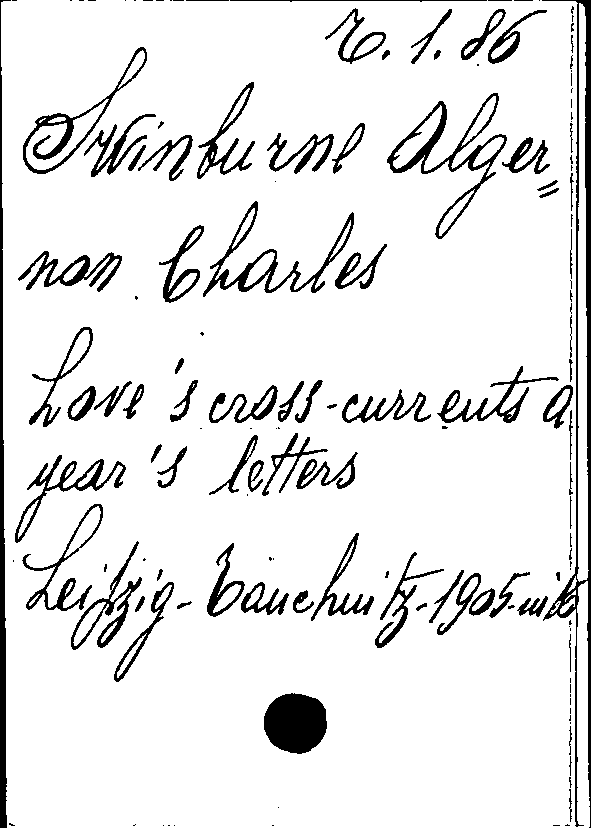 T. 1. 86
Swinburne Alger=
non Charles
Love's cross-currents a
year's letters
Leipzig-Tauchnitz-1905-in16